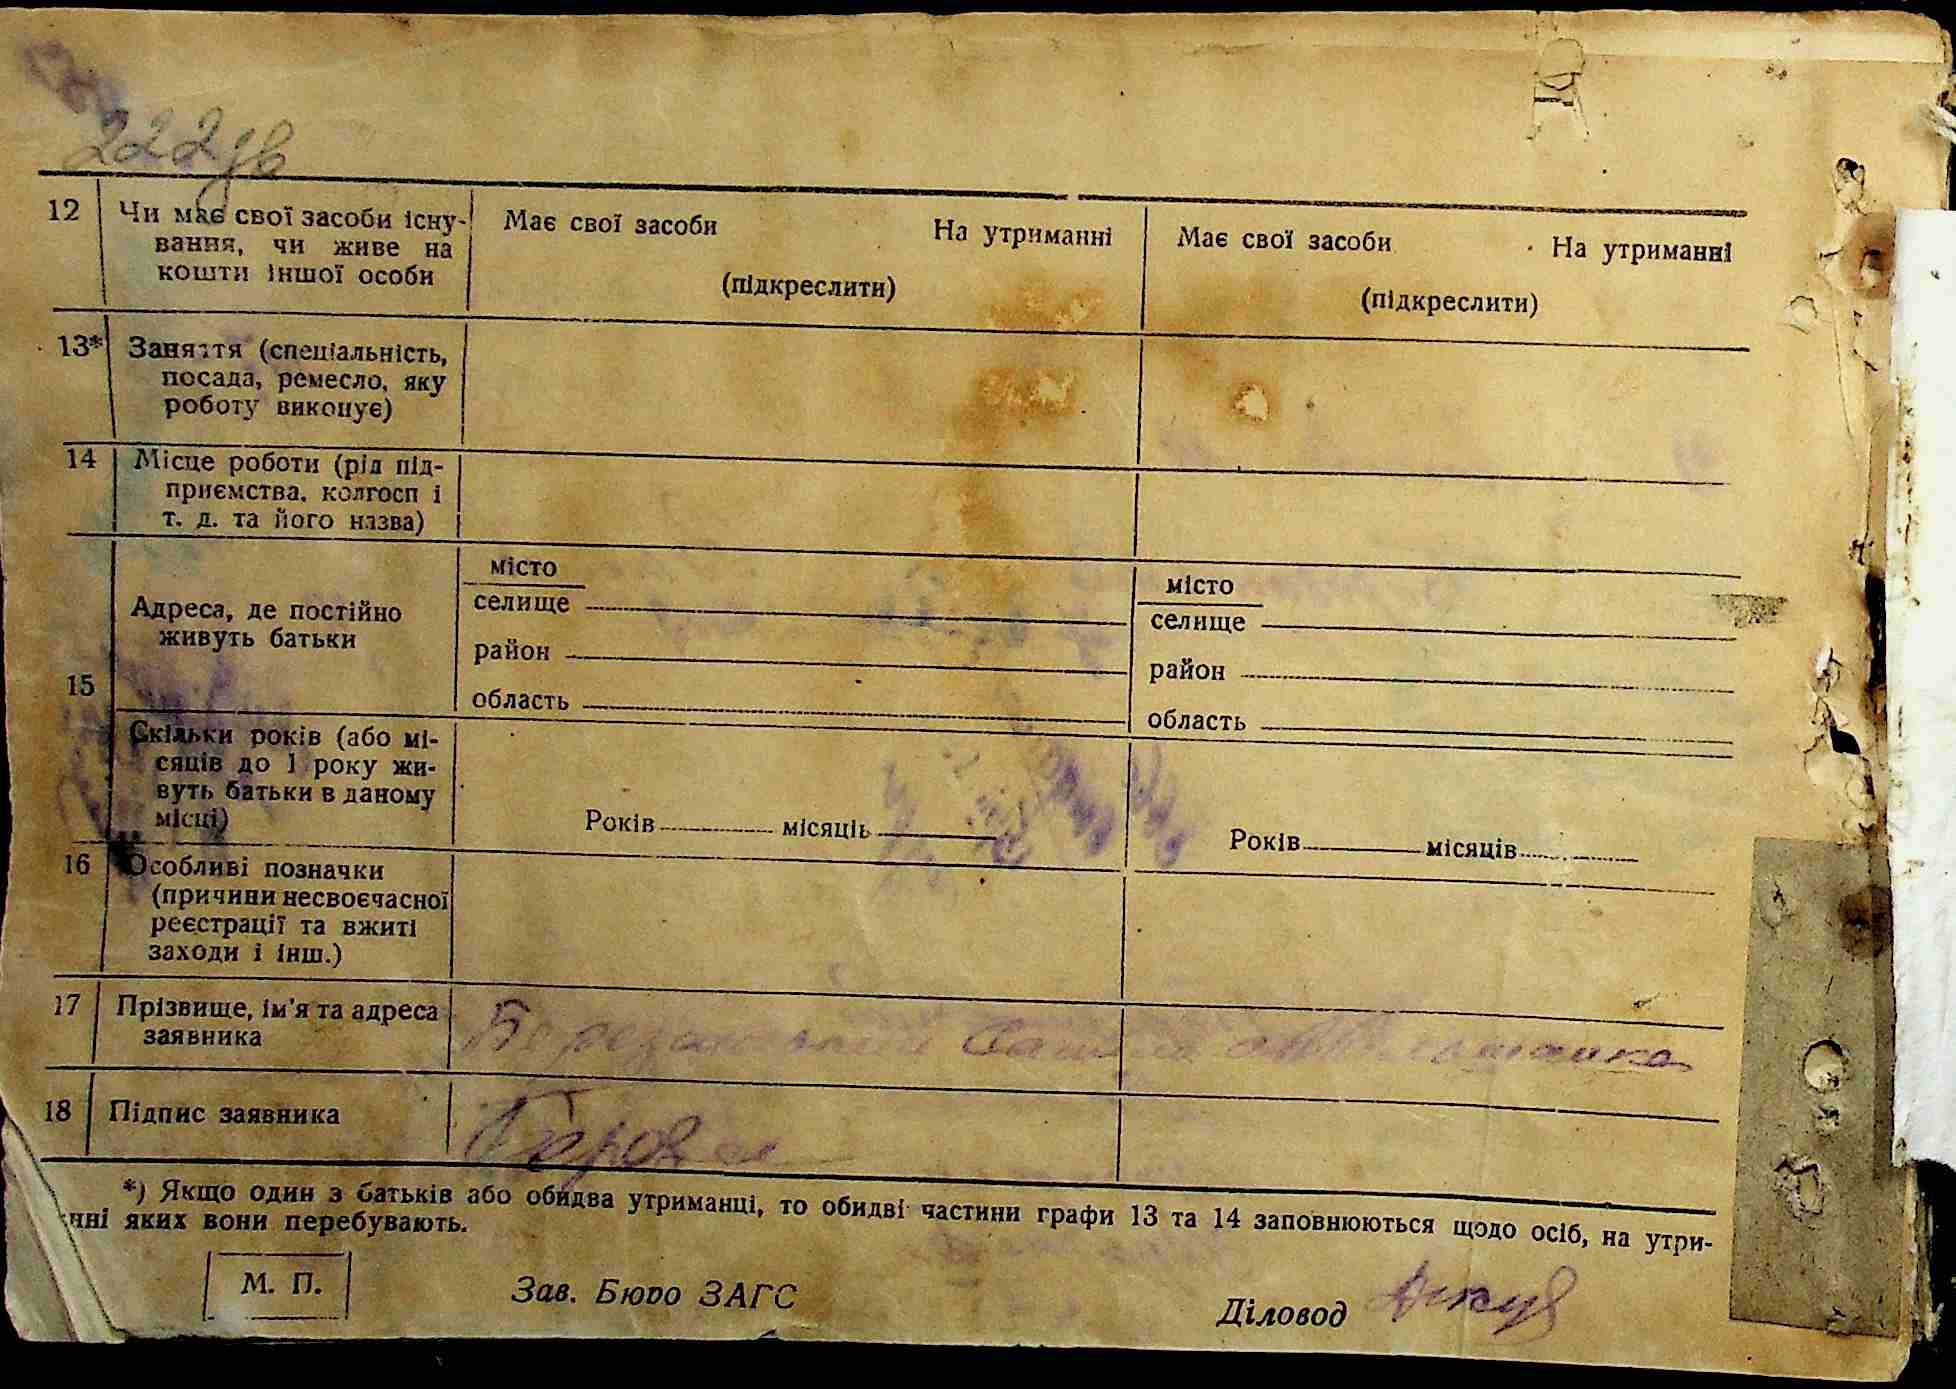 222зв
12 Чи має свої засоби існу- Має свої засоби На утриманні Має свої засоби На утриманні
вання, чи живе на
кошти іншої особи (підкреслити) (підкреслити)
13* Заняття (спеціальність,
посада, ремесло, яку
роботу виконує)
14 Місце роботи (рід під-
приємства, колгосп і
т. д. та його назва)
місто місто
Адреса, де постійно селище селище
живуть батьки район район
15 область область
Скільки років (або мі-
сяців до 1 року жи-
вуть батьки в даному
місці) Років місяців Років місяців
16 Особливі позначки
(причини несвоєчасної
реєстрації та вжиті
заходи і інш.)
17 Прізвище, ім'я та адреса
заявника
18 Підпис заявника
*) Якщо один з батьків або обидва утриманці, то обидві частини графи 13 та 14 заповнюються щодо осіб, на утри-
нні яких вони перебувають.
М. П. Зав. Бюро ЗАГС Діловод